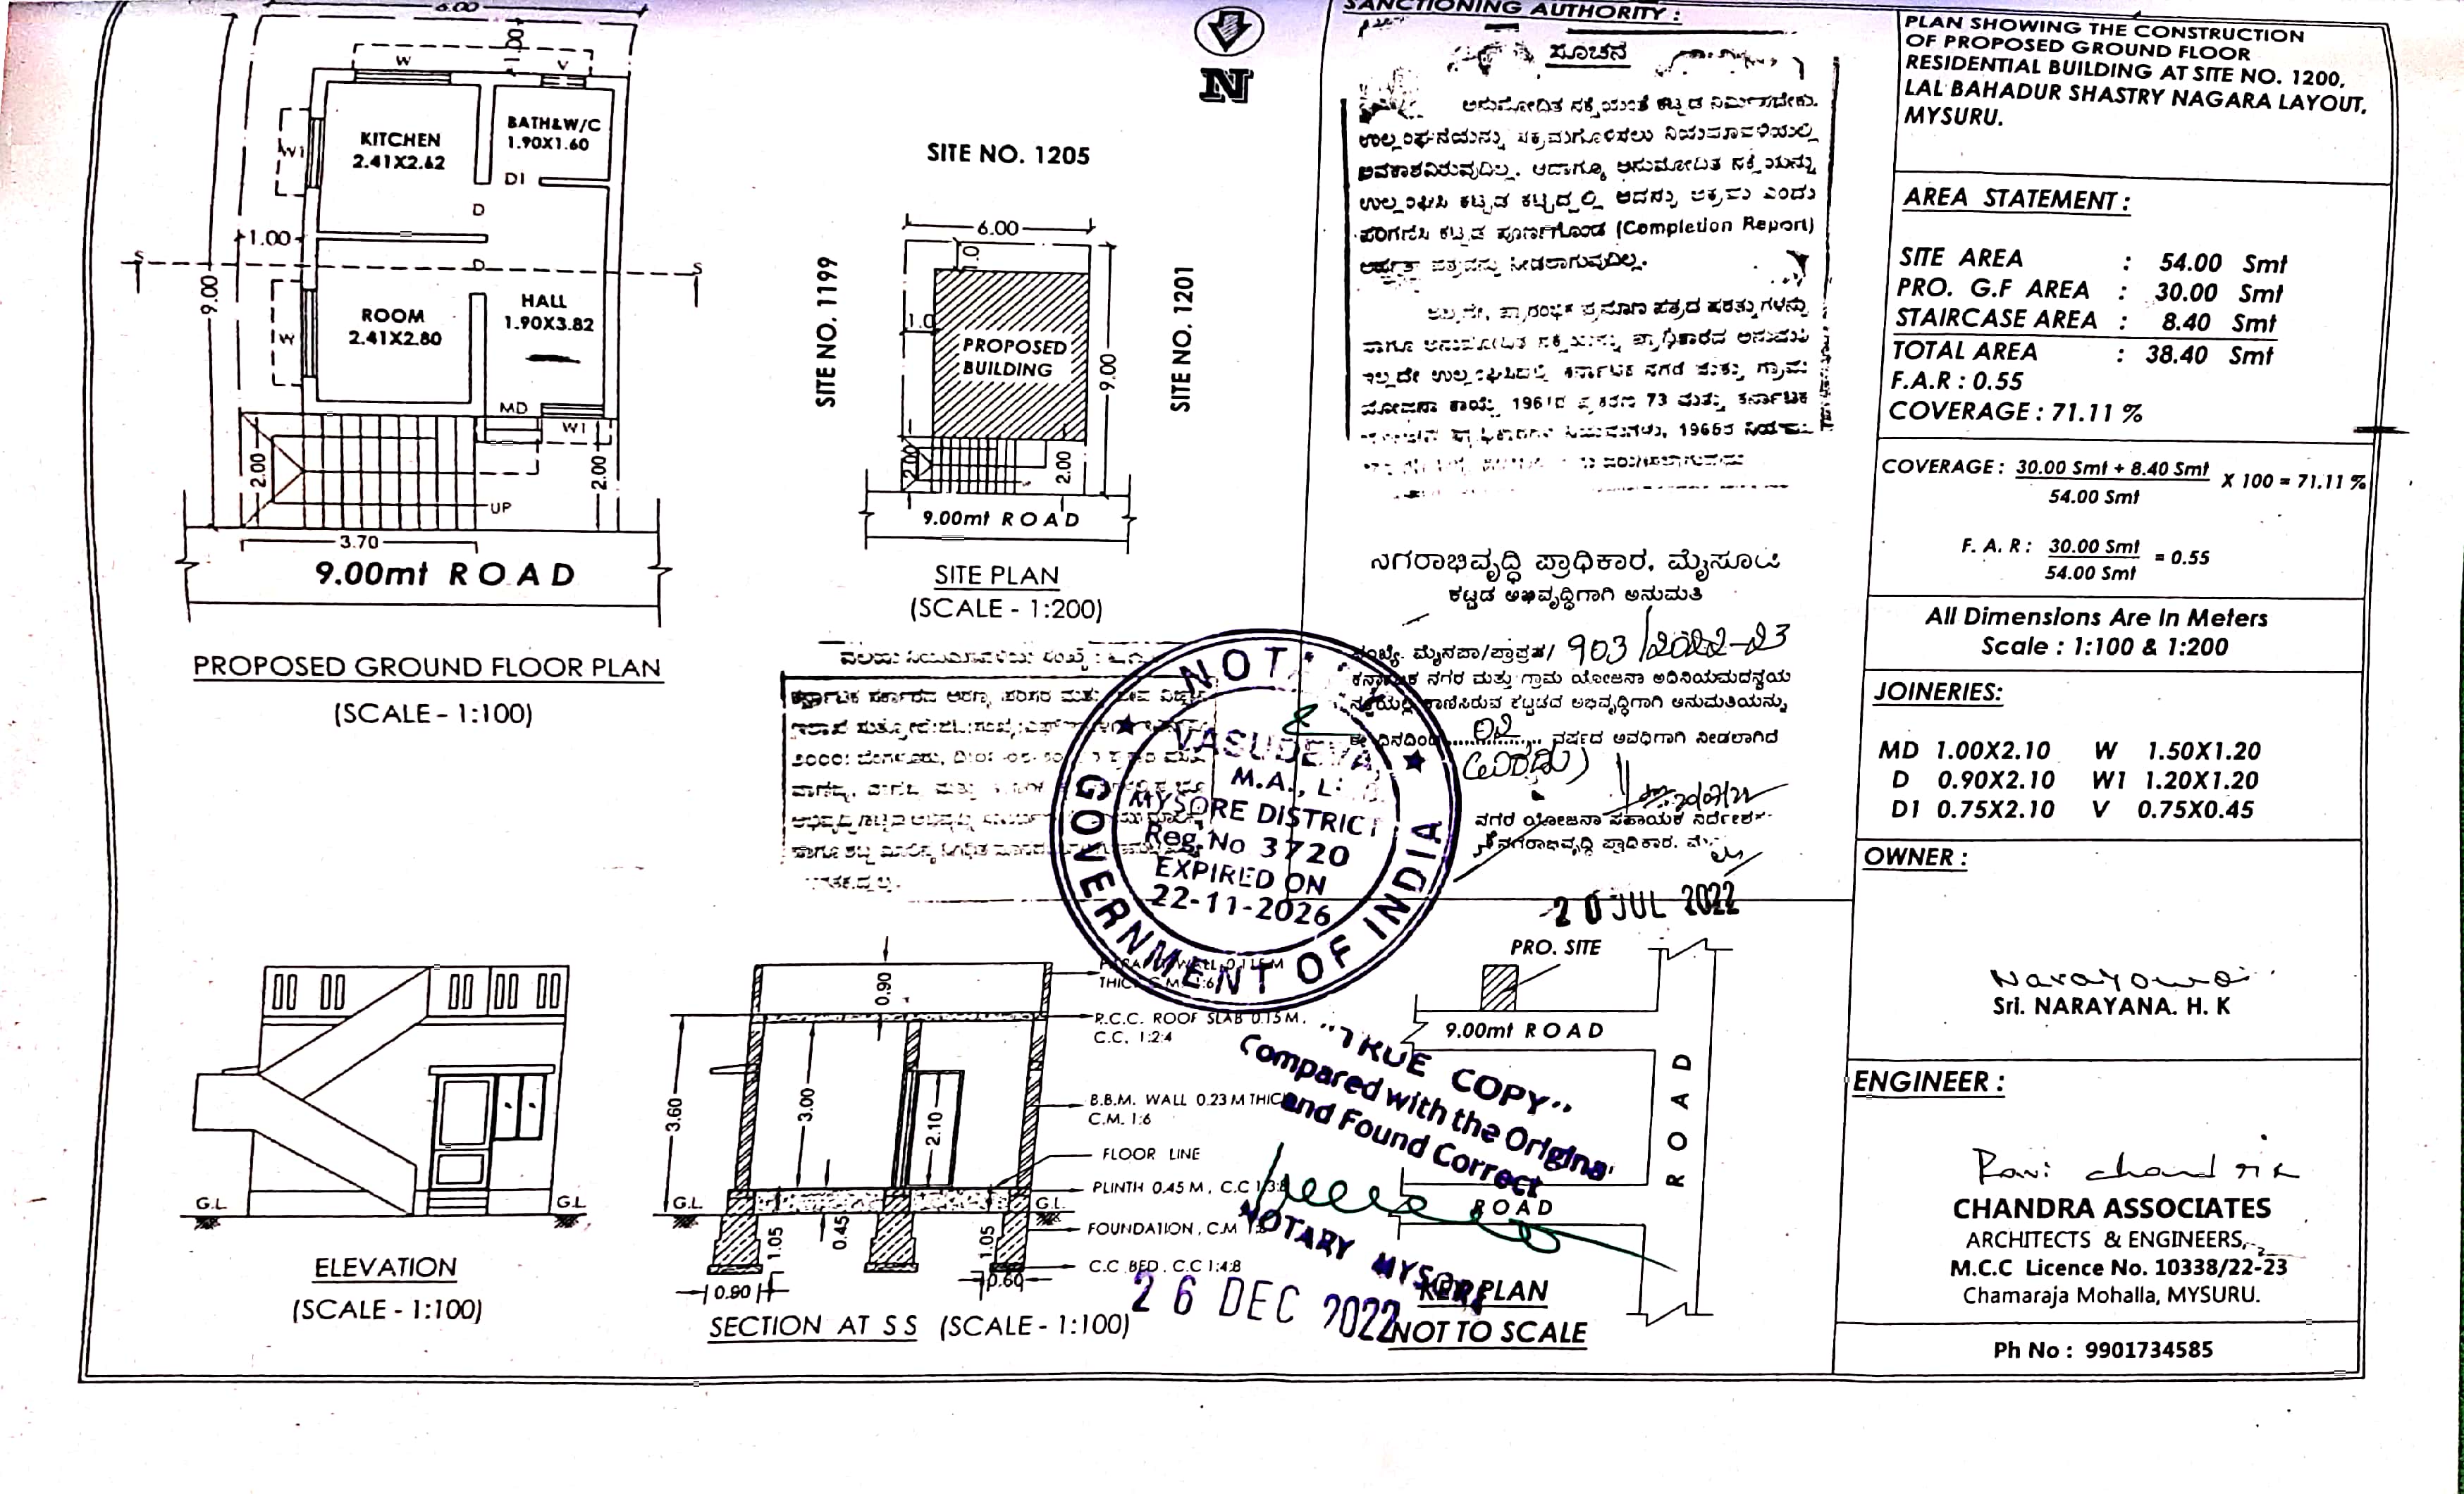 6.00
1.00
W
V
KITCHEN
2.41X2.62
BATH&W/C
1.90X1.60
W1
D1
D
1.00
S
S
D
9.00
ROOM
2.41X2.80
HALL
1.90X3.82
W
MD
W1
2.00
2.00
UP
3.70
9.00mt ROAD
PROPOSED GROUND FLOOR PLAN
(SCALE - 1:100)
N
SITE NO. 1205
6.00
1.0
SITE NO. 1199
1.0
PROPOSED
BUILDING
9.00
SITE NO. 1201
2.00
2.00
9.00mt ROAD
SITE PLAN
(SCALE - 1:200)
SANCTIONING AUTHORITY :
ಸೂಚನೆ
ಅನುಮೋದಿತ ನಕ್ಷೆಯಂತೆ ಕಟ್ಟಡ ನಿರ್ಮಿಸಬೇಕು.
ಉಲ್ಲಂಘನೆಯನ್ನು ಸಕ್ರಮಗೊಳಿಸಲು ನಿಯಮಾವಳಿಯಲ್ಲಿ
ಅವಕಾಶವಿರುವುದಿಲ್ಲ. ಆದಾಗ್ಯೂ ಅನುಮೋದಿತ ನಕ್ಷೆಯನ್ನು
ಉಲ್ಲಂಘಿಸಿ ಕಟ್ಟಡ ಕಟ್ಟಿದ್ದಲ್ಲಿ ಅದನ್ನು ಅಕ್ರಮ ಎಂದು
ಪರಿಗಣಿಸಿ ಕಟ್ಟಡ ಪೂರ್ಣಗೊಂಡ (Completion Report)
ಅರ್ಹತಾ ಪತ್ರವನ್ನು ನೀಡಲಾಗುವುದಿಲ್ಲ.
ಪ್ರಾರಂಭಿಕ ಪ್ರಮಾಣ ಪತ್ರದ ಷರತ್ತುಗಳನ್ನು
ಹಾಗೂ ಅನುಮೋದಿತ ನಕ್ಷೆಯನ್ನು ಪ್ರಾಧಿಕಾರದ ಅನುಮತಿ
ಇಲ್ಲದೇ ಉಲ್ಲಂಘಿಸಿದಲ್ಲಿ ಕರ್ನಾಟಕ ನಗರ ಮತ್ತು ಗ್ರಾಮ
ಯೋಜನಾ ಕಾಯ್ದೆ 1961ರ ಪ್ರಕರಣ 73 ಮತ್ತು ಕರ್ನಾಟಕ
1965ರ
ನಗರಾಭಿವೃದ್ಧಿ ಪ್ರಾಧಿಕಾರ, ಮೈಸೂರು
ಕಟ್ಟಡ ಅಭಿವೃದ್ಧಿಗಾಗಿ ಅನುಮತಿ
ಸಂಖ್ಯೆ. ಮೈನಪ್ರಾ/ಪ್ರಾಪ್ರಪ/ 903/2022-23
ಕರ್ನಾಟಕ ನಗರ ಮತ್ತು ಗ್ರಾಮ ಯೋಜನಾ ಅಧಿನಿಯಮದನ್ವಯ
ನಕ್ಷೆಯಲ್ಲಿ ಕಾಣಿಸಿರುವ ಕಟ್ಟಡದ ಅಭಿವೃದ್ಧಿಗಾಗಿ ಅನುಮತಿಯನ್ನು
ಈ ದಿನದಿಂದ 02 ವರ್ಷದ ಅವಧಿಗಾಗಿ ನೀಡಲಾಗಿದೆ
(ಎರಡು)
ನಗರ ಯೋಜನಾ ಸಹಾಯಕ ನಿರ್ದೇಶಕ
ನಗರಾಭಿವೃದ್ಧಿ ಪ್ರಾಧಿಕಾರ.
20 JUL 2022
ಕರ್ನಾಟಕ ಸರ್ಕಾರದ ಅರಣ್ಯ, ಪರಿಸರ ಮತ್ತು
NOT
VASUDEVA
M.A., L
MYSORE DISTRICT
Reg.No 3720
EXPIRED ON
22-11-2026
GOVERNMENT OF INDIA
ELEVATION
(SCALE - 1:100)
G.L
G.L
0.90
3.60
3.00
2.10
G.L
G.L
1.05
0.45
1.05
0.90
0.60
PARAPET WALL 0.115 M
THICK C.M. 1:6
R.C.C. ROOF SLAB 0.15 M.
C.C. 1:2:4
B.B.M. WALL 0.23 M THICK
C.M. 1:6
FLOOR LINE
PLINTH 0.45 M, C.C 1:3:8
FOUNDATION, C.M 1:8
C.C BED. C.C 1:4:8
SECTION AT S S (SCALE - 1:100)
"TRUE COPY"
Compared with the Original
and Found Correct
NOTARY MYSORE
26 DEC 2022
PRO. SITE
9.00mt ROAD
ROAD
ROAD
KEY PLAN
NOT TO SCALE
PLAN SHOWING THE CONSTRUCTION
OF PROPOSED GROUND FLOOR
RESIDENTIAL BUILDING AT SITE NO. 1200,
LAL BAHADUR SHASTRY NAGARA LAYOUT,
MYSURU.
AREA STATEMENT :
SITE AREA : 54.00 Smt
PRO. G.F AREA : 30.00 Smt
STAIRCASE AREA : 8.40 Smt
TOTAL AREA : 38.40 Smt
F.A.R : 0.55
COVERAGE : 71.11 %
COVERAGE : 30.00 Smt + 8.40 Smt X 100 = 71.11 %
54.00 Smt
F. A. R : 30.00 Smt = 0.55
54.00 Smt
All Dimensions Are In Meters
Scale : 1:100 & 1:200
JOINERIES:
MD 1.00X2.10 W 1.50X1.20
D 0.90X2.10 W1 1.20X1.20
D1 0.75X2.10 V 0.75X0.45
OWNER :
Narayana
Sri. NARAYANA. H. K
ENGINEER :
CHANDRA ASSOCIATES
ARCHITECTS & ENGINEERS,
M.C.C Licence No. 10338/22-23
Chamaraja Mohalla, MYSURU.
Ph No : 9901734585